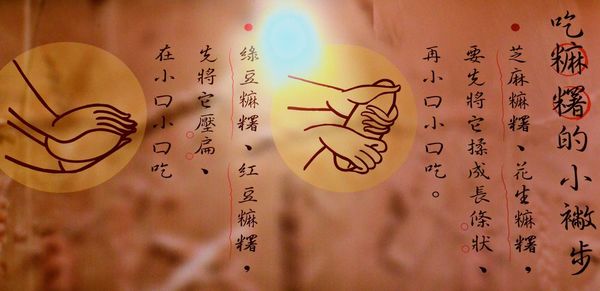 吃糍糬的小撇步
芝麻糍糬、花生糍糬，
要先將它揉成長條狀、
再小口小口吃。
綠豆糍糬、紅豆糍糬，
先將它壓扁、
在小口小口吃